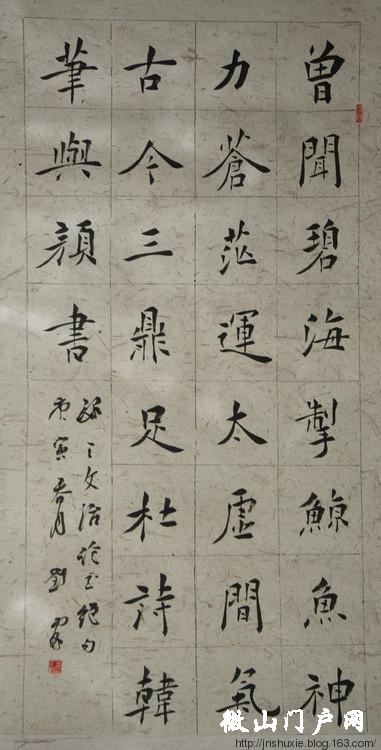 曾聞碧海掣鯨魚神
力蒼茫運太虛間氣
古今三鼎足杜詩韓
筆與顏書
録王文治論書絕句
庚寅春月 劉
微山门户网
http://jnshuxie.blog.163.com/